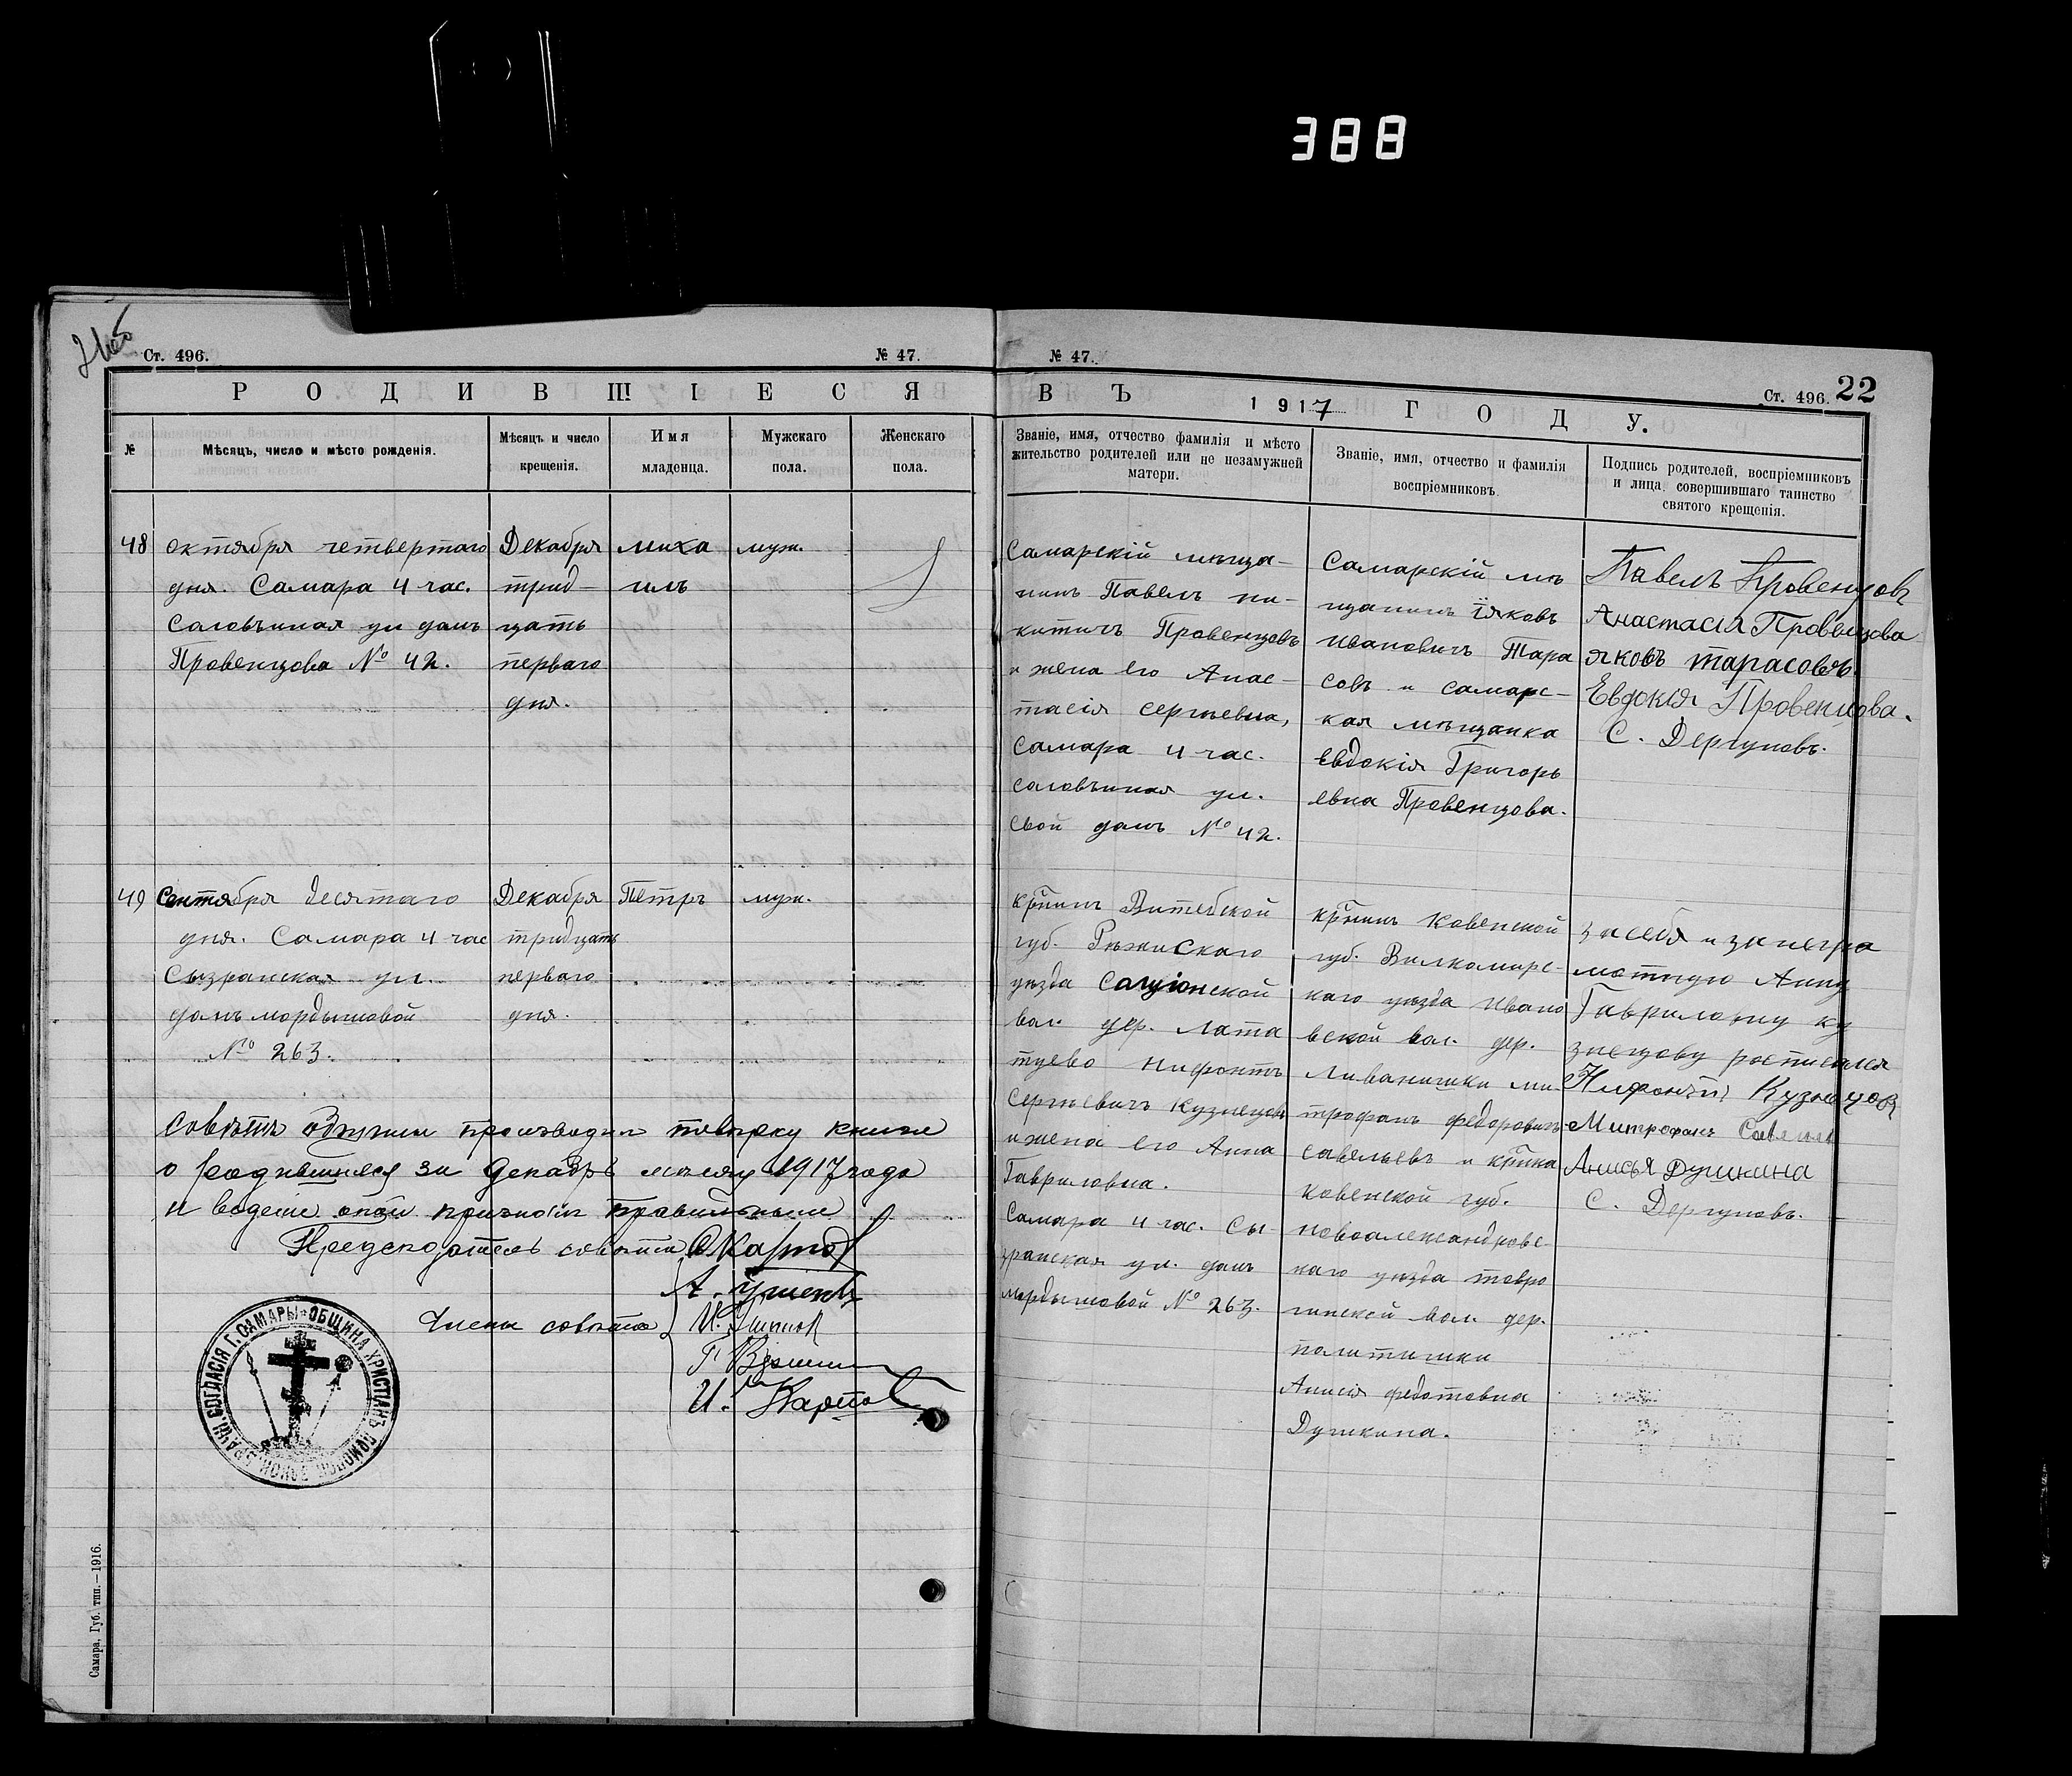 388
21об
Ст. 496.
№ 47.
РОДИВШІЕСЯ
№
Мѣсяцъ, число и мѣсто рожденія.
Мѣсяцъ и число
крещенія.
Имя
младенца.
Мужскаго
пола.
Женскаго
пола.
48
октября четвертаго
дня. Самара 4 час.
Саловъиная ул домъ
Провенцова № 42.
Декабря
трид-
цать
перваго
дня.
миха
илъ
муж.
49
Сентября десятаго
дня. Самара 4 час
Сызранская ул.
домъ мордышовой
№ 263.
Декабря
тридцать
перваго
дня.
Петръ
муж.
Совѣтъ общины производил повѣрку книги
о родившихся за Декабрь месяц 1917 года
и ведение оной признали правильным
Председатель совета С Карпов
А.
Члены совета
И.
Г.
И. Карпов
ОБЩИНА ХРИСТІАНЪ ПОМОР. ЗАКОН. БРАЧН. СОГЛАСІЯ Г. САМАРЫ
Самара, Губ. тип.—1916.
№ 47.
Ст. 496.
22
ВЪ 1917 ГОДУ.
Званіе, имя, отчество фамилія и мѣсто
жительство родителей или не незамужней
матери.
Званіе, имя, отчество и фамилія
воспріемниковъ.
Подпись родителей, воспріемниковъ
и лица, совершившаго таинство
святого крещенія.
Самарскій мѣща-
нинъ Павелъ ни-
китичъ Провенцовъ
и жена его Анас-
тасія сергѣевна,
Самара 4 час.
саловъиная ул.
свой домъ № 42.
Самарскій мѣ
щанинъ Іяковъ
ивановичъ Тара
совъ и самарс-
кая мѣщанка
Евдокія Григорь
евна Провенцова.
Павелъ Провенцовъ
Анастасія Провенцова
яковъ тарасовъ.
Евдокія Провенцова.
С. Дергуновъ.
кр̃нинъ Витебской
губ. Рѣжискаго
уѣзда Солуіонской
вол. дер. Лата
туево нифонтъ
Сергѣевичъ Кузнецовъ
и жена его Анна
Гавриловна.
Самара 4 час. Сы-
зранская ул. домъ
мордышовой № 263.
кр̃нинъ Ковенской
губ. Вилкомирс-
каго уѣзда Ивано
вской вол. дер.
Ливанишки ми-
трофанъ федоровичъ
савельевъ и кр̃нка
Ковенской губ.
новоалександровс-
каго уѣзда товро
гинской вол. дер.
политишки
Анисія федотовна
Душкина.
за себя и за негра
мотную Анну
Гавриловну ку
знецову росписался
Нифонтъ Кузнецовъ
Митрофанъ Савельев
Анисья Душкина
С. Дергуновъ.